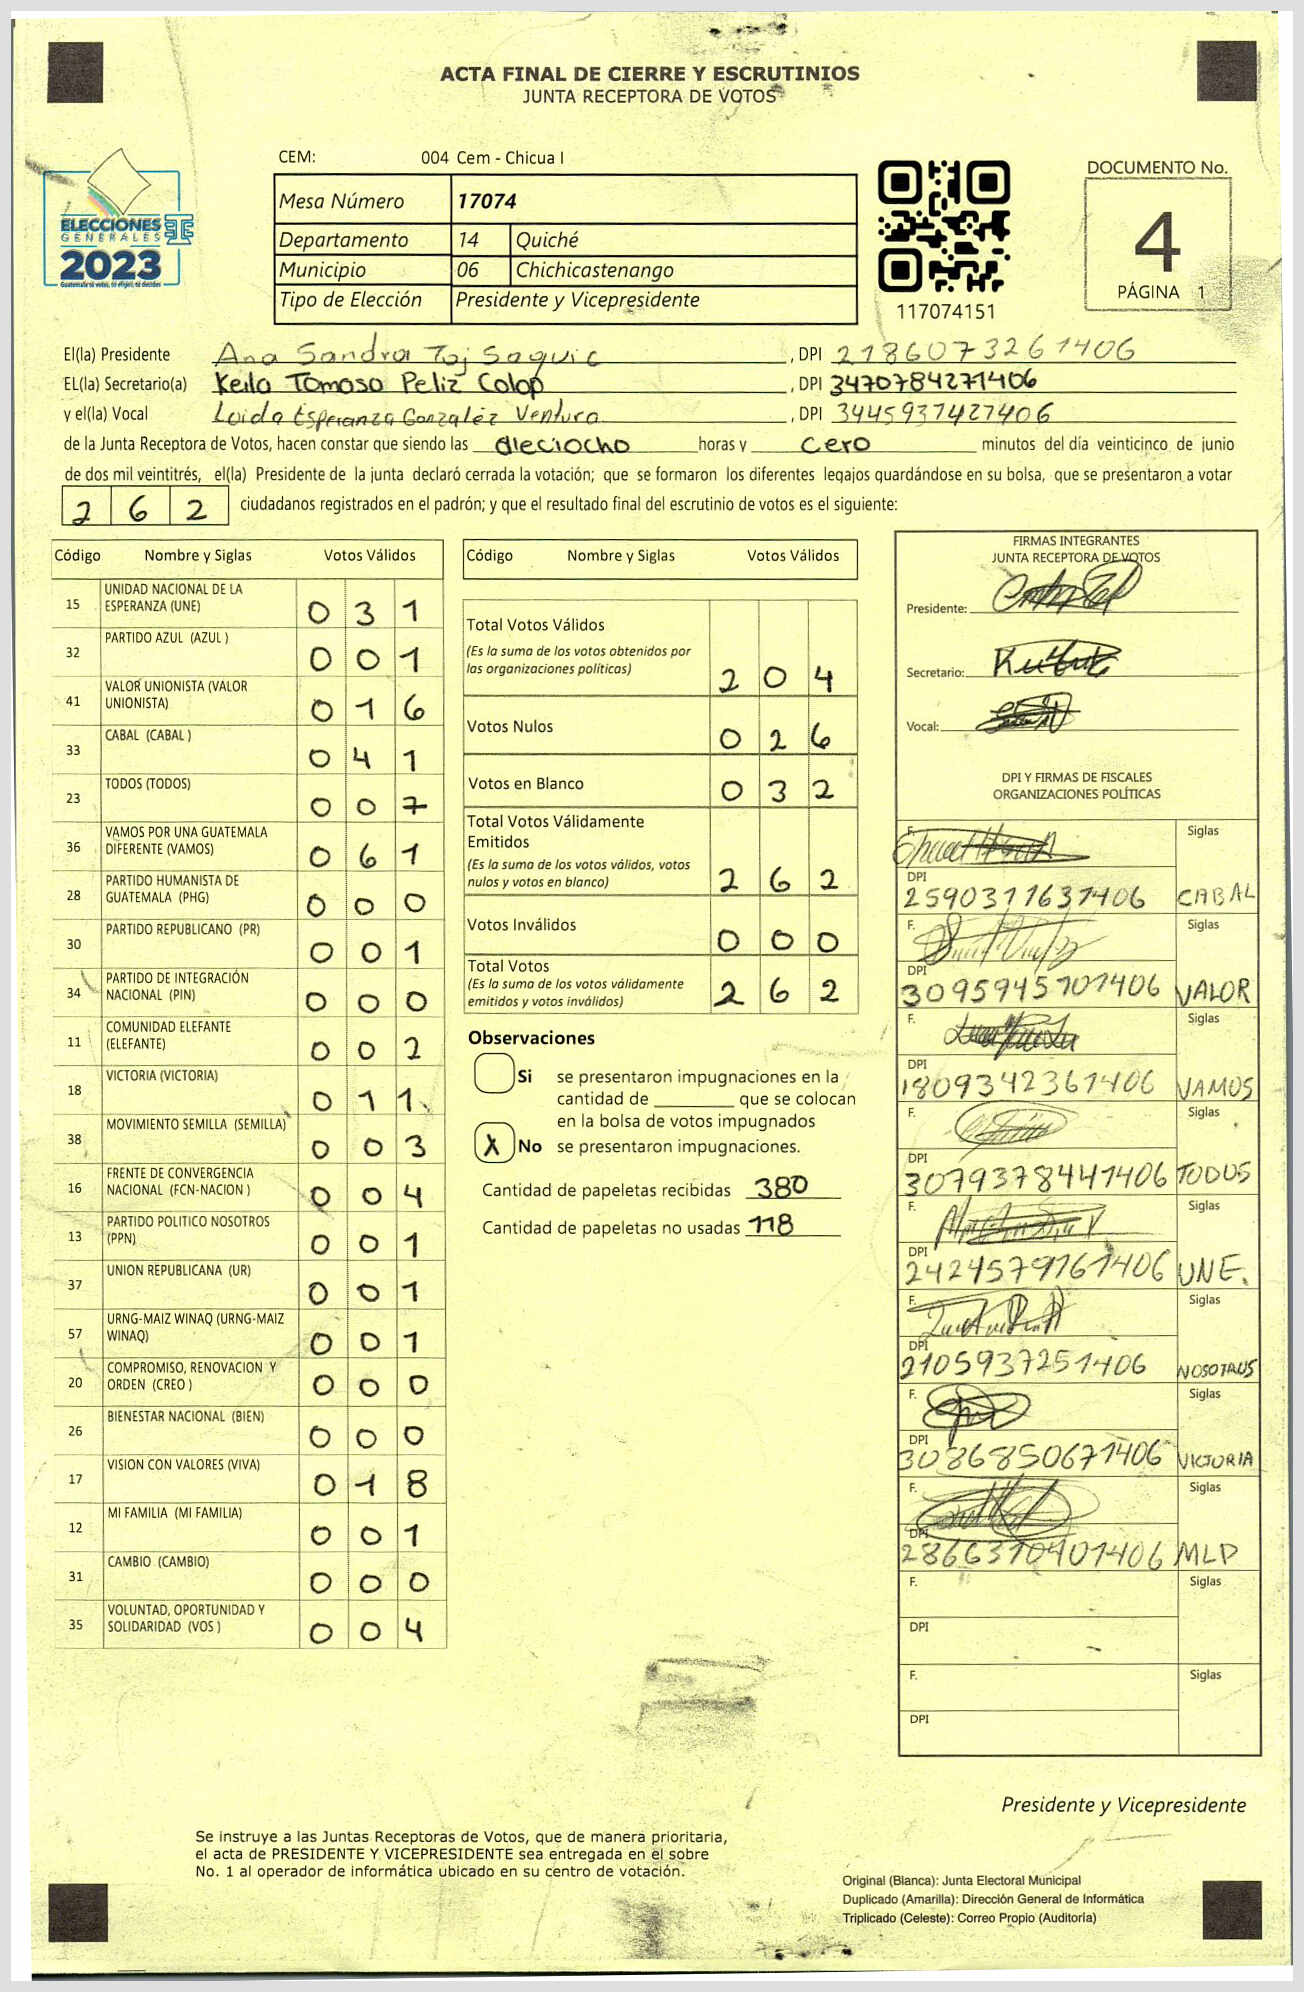 ACTA FINAL DE CIERRE Y ESCRUTINIOS
JUNTA RECEPTORA DE VOTOS
CEM: 004 Cem - Chicua I
Mesa Número 17074
Departamento 14 Quiché
Municipio 06 Chichicastenango
Tipo de Elección Presidente y Vicepresidente
ELECCIONES
GENERALES
2023
Guatemala tú votas, tú eliges, tú decides
117074151
DOCUMENTO No.
4
PÁGINA 1
El(la) Presidente Ana Sandra Toj Saquic , DPI 2186073261406
EL(la) Secretario(a) Keila Tomasa Peliz Colop , DPI 3470784271406
y el(la) Vocal Loida Esperanza Gonzaléz Ventura , DPI 3445937427406
de la Junta Receptora de Votos, hacen constar que siendo las dieciocho horas y cero minutos del día veinticinco de junio
de dos mil veintitrés, el(la) Presidente de la junta declaró cerrada la votación; que se formaron los diferentes legajos guardándose en su bolsa, que se presentaron a votar
262 ciudadanos registrados en el padrón; y que el resultado final del escrutinio de votos es el siguiente:
Código Nombre y Siglas Votos Válidos
15 UNIDAD NACIONAL DE LA
ESPERANZA (UNE) 0 3 1
32 PARTIDO AZUL (AZUL ) 0 0 1
41 VALOR UNIONISTA (VALOR
UNIONISTA) 0 1 6
33 CABAL (CABAL ) 0 4 1
23 TODOS (TODOS) 0 0 7
36 VAMOS POR UNA GUATEMALA
DIFERENTE (VAMOS) 0 6 1
28 PARTIDO HUMANISTA DE
GUATEMALA (PHG) 0 0 0
30 PARTIDO REPUBLICANO (PR) 0 0 1
34 PARTIDO DE INTEGRACIÓN
NACIONAL (PIN) 0 0 0
11 COMUNIDAD ELEFANTE
(ELEFANTE) 0 0 2
18 VICTORIA (VICTORIA) 0 1 1
38 MOVIMIENTO SEMILLA (SEMILLA) 0 0 3
16 FRENTE DE CONVERGENCIA
NACIONAL (FCN-NACION ) 0 0 4
13 PARTIDO POLITICO NOSOTROS
(PPN) 0 0 1
37 UNION REPUBLICANA (UR) 0 0 1
57 URNG-MAIZ WINAQ (URNG-MAIZ
WINAQ) 0 0 1
20 COMPROMISO, RENOVACION Y
ORDEN (CREO ) 0 0 0
26 BIENESTAR NACIONAL (BIEN) 0 0 0
17 VISION CON VALORES (VIVA) 0 1 8
12 MI FAMILIA (MI FAMILIA) 0 0 1
31 CAMBIO (CAMBIO) 0 0 0
35 VOLUNTAD, OPORTUNIDAD Y
SOLIDARIDAD (VOS ) 0 0 4
Código Nombre y Siglas Votos Válidos
Total Votos Válidos
(Es la suma de los votos obtenidos por
las organizaciones políticas) 2 0 4
Votos Nulos 0 2 6
Votos en Blanco 0 3 2
Total Votos Válidamente
Emitidos
(Es la suma de los votos válidos, votos
nulos y votos en blanco) 2 6 2
Votos Inválidos 0 0 0
Total Votos
(Es la suma de los votos válidamente
emitidos y votos inválidos) 2 6 2
Observaciones
Si se presentaron impugnaciones en la
cantidad de ________ que se colocan
en la bolsa de votos impugnados
X No se presentaron impugnaciones.
Cantidad de papeletas recibidas 380
Cantidad de papeletas no usadas 118
FIRMAS INTEGRANTES
JUNTA RECEPTORA DE VOTOS
Presidente:
Secretario:
Vocal:
DPI Y FIRMAS DE FISCALES
ORGANIZACIONES POLÍTICAS
F. Siglas
DPI
2590311631406 CABAL
F. Siglas
DPI
3095945701406 VALOR
F. Siglas
DPI
1809342361406 VAMOS
F. Siglas
DPI
3079378441406 TODUS
F. Siglas
DPI
2424579161406 UNE.
F. Siglas
DPI
2105937251406 NOSOTRUS
F. Siglas
DPI
3086850671406 VICTORIA
F. Siglas
DPI
2866310401406 MLP
F. Siglas
DPI
F. Siglas
DPI
Presidente y Vicepresidente
Se instruye a las Juntas Receptoras de Votos, que de manera prioritaria,
el acta de PRESIDENTE Y VICEPRESIDENTE sea entregada en el sobre
No. 1 al operador de informática ubicado en su centro de votación.
Original (Blanca): Junta Electoral Municipal
Duplicado (Amarilla): Dirección General de Informática
Triplicado (Celeste): Correo Propio (Auditoría)